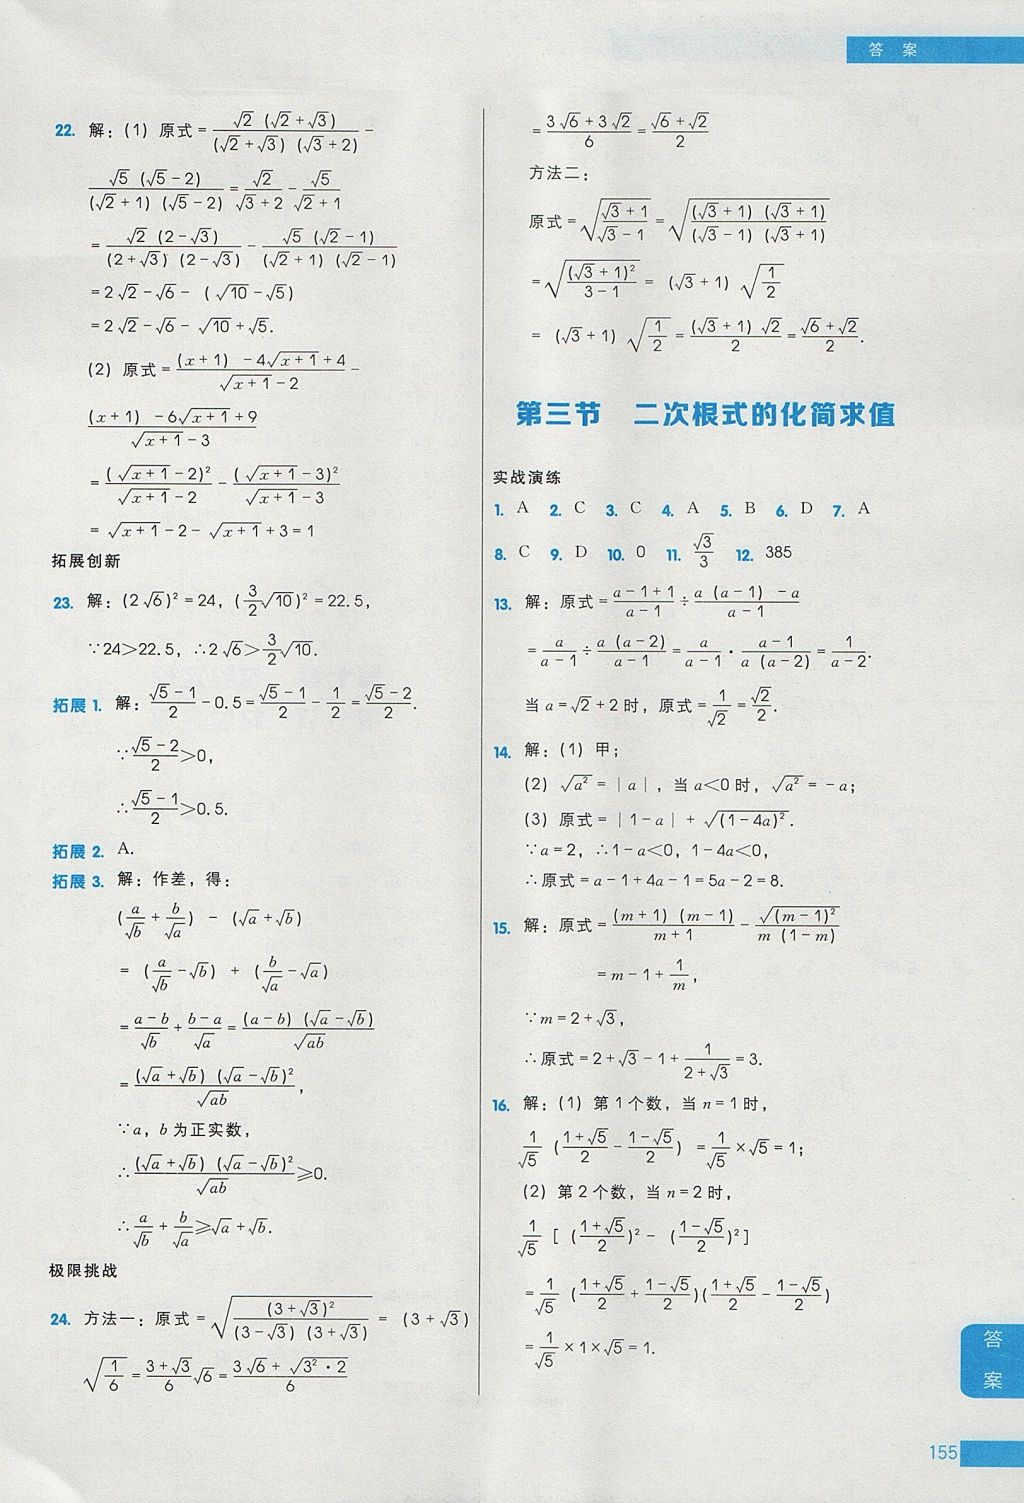 答 案
22. 解：(1) 原式 = √2 (√2+√3) / (√2+√3) (√3+2) −
√5 (√5−2) / (√2+1) (√5−2) = √2/(√3+2) − √5/(√2+1)
= √2 (2−√3) / (2+√3) (2−√3) − √5 (√2−1) / (√2+1) (√2−1)
= 2√2−√6− (√10−√5)
= 2√2−√6−√10+√5.
(2) 原式 = ((x+1) −4√(x+1)+4) / (√(x+1)−2) −
((x+1) −6√(x+1)+9) / (√(x+1)−3)
= (√(x+1)−2)² / (√(x+1)−2) − (√(x+1)−3)² / (√(x+1)−3)
= √(x+1)−2−√(x+1)+3=1
拓展创新
23. 解：(2√6)²=24，(3/2 √10)²=22.5，
∵24>22.5，∴2√6>3/2 √10.
拓展 1. 解：(√5−1)/2 −0.5= (√5−1)/2 − 1/2 = (√5−2)/2.
∵(√5−2)/2>0，
∴(√5−1)/2>0.5.
拓展 2. A.
拓展 3. 解：作差，得：
(a/√b + b/√a) − (√a+√b)
= (a/√b −√b) + (b/√a −√a)
= (a−b)/√b + (b−a)/√a = (a−b) (√a−√b) / √ab
= (√a+√b) (√a−√b)² / √ab，
∵a，b为正实数，
∴(√a+√b) (√a−√b)² / √ab ≥0.
∴a/√b + b/√a ≥√a+√b.
极限挑战
24. 方法一：原式 = √((3+√3)² / (3−√3) (3+√3)) = (3+√3)
√(1/6) = (3+√3)/6 √6 = (3√6+√(3²·2))/6
= (3√6+3√2)/6 = (√6+√2)/2
方法二：
原式 = √((√3+1)/(√3−1)) = √((√3+1) (√3+1) / (√3−1) (√3+1))
= √((√3+1)²/(3−1)) = (√3+1) √(1/2)
= (√3+1) √(1/2) = (√3+1) √2 / 2 = (√6+√2)/2.
第三节 二次根式的化简求值
实战演练
1. A 2. C 3. C 4. A 5. B 6. D 7. A
8. C 9. D 10. 0 11. √3/3 12. 385
13. 解：原式 = (a−1+1)/(a−1) ÷ (a (a−1) −a)/(a−1)
= a/(a−1) ÷ a (a−2)/(a−1) = a/(a−1) · (a−1)/(a (a−2)) = 1/(a−2).
当a=√2+2时，原式 = 1/√2 = √2/2.
14. 解：(1) 甲；
(2) √a² = |a|，当a<0时，√a² = −a；
(3) 原式 = |1−a| + √(1−4a)².
∵a=2，∴1−a<0，1−4a<0，
∴原式=a−1+4a−1=5a−2=8.
15. 解：原式 = (m+1) (m−1)/(m+1) − √(m−1)²/(m (1−m))
= m−1+1/m，
∵m=2+√3，
∴原式=2+√3−1+1/(2+√3)=3.
16. 解：(1) 第1个数，当n=1时，
1/√5 ((1+√5)/2 − (1−√5)/2) = 1/√5 ×√5=1；
(2) 第2个数，当n=2时，
1/√5 [ ((1+√5)/2)² − ((1−√5)/2)²]
= 1/√5 ((1+√5)/2 + (1−√5)/2)((1+√5)/2 − (1−√5)/2)
= 1/√5 ×1×√5=1.
答
案
155